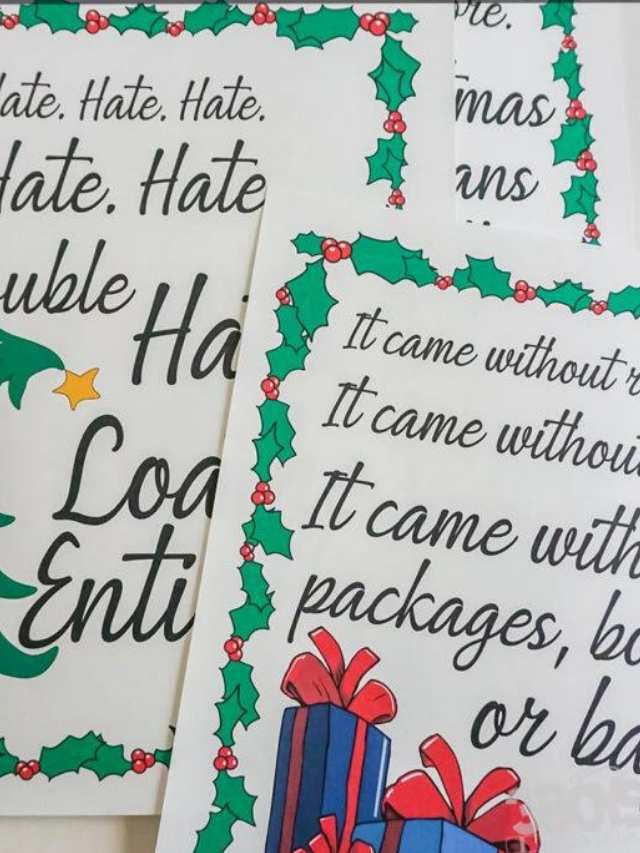 Hate. Hate. Hate.
Hate. Hate
ouble
Ha
Loa
Enti
re.
mas
ans
It came without r
It came withou
It came with
packages, bo
or ba